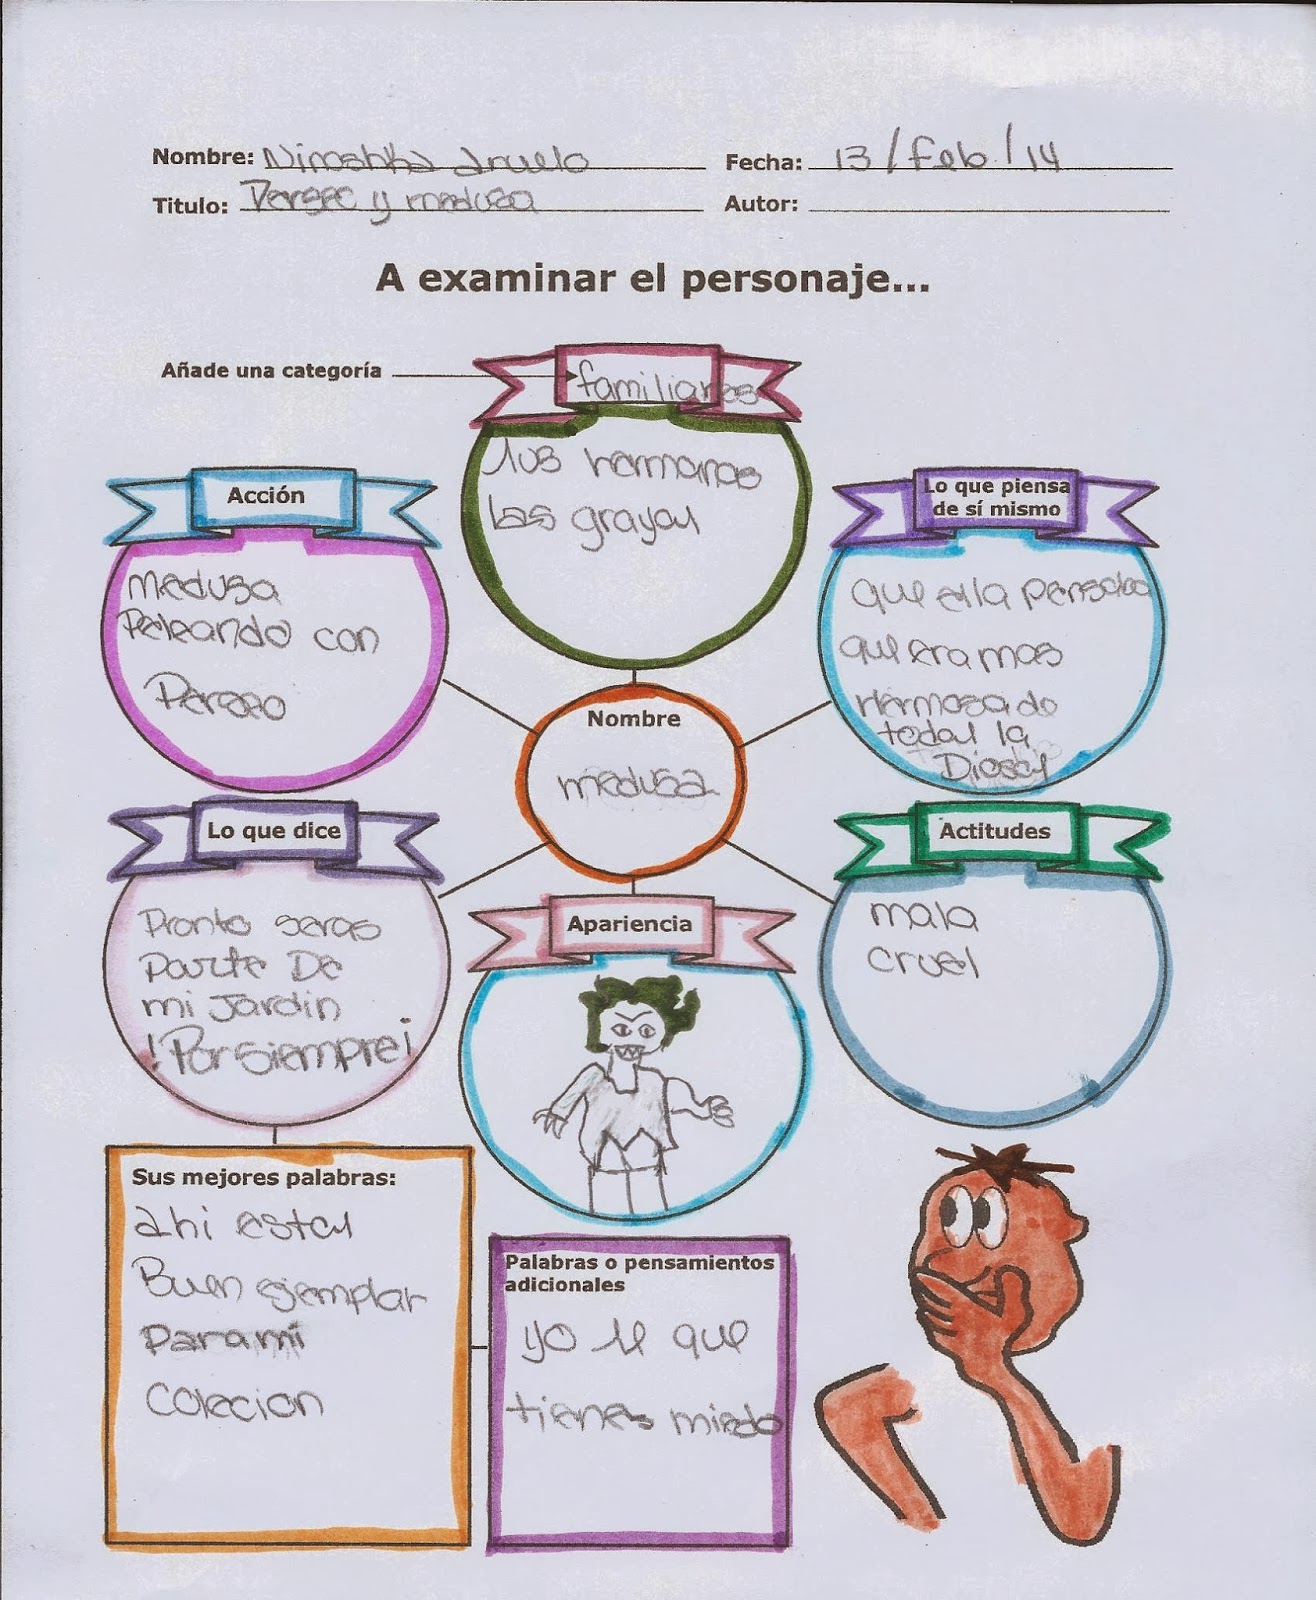 Nombre: Nimoshka Fecha: 13/feb./14
Titulo: Perseo y medusa Autor:
A examinar el personaje...
Añade una categoría
familiares
sus hermanas
las grayas
Acción
Medusa
Peleando con
Perseo
Lo que piensa
de sí mismo
que ella pensaba
que era mas
Hermosa de
todas la
Diosas
Nombre
medusa
Lo que dice
Pronto seras
parte De
mi Jardin
!Por siempre¡
Apariencia
Actitudes
mala
cruel
Sus mejores palabras:
ahi estas
Buen ejemplar
Para mi
colecion
Palabras o pensamientos
adicionales
yo se que
tienes miedo